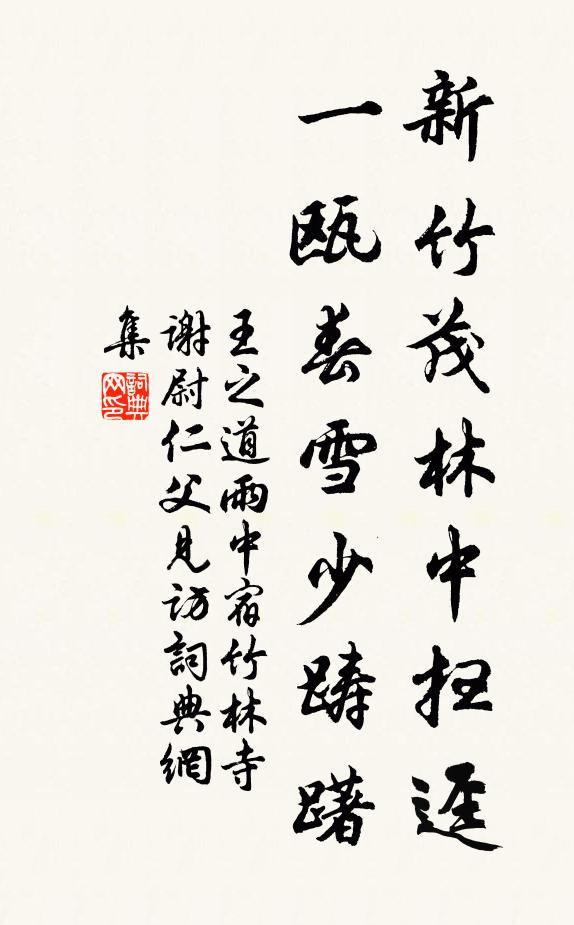 新竹茂林中扫逕
一瓯春雪少踌躇
王之道雨中宿竹林寺
謝尉仁父見訪詞典網
集
詞典
网印